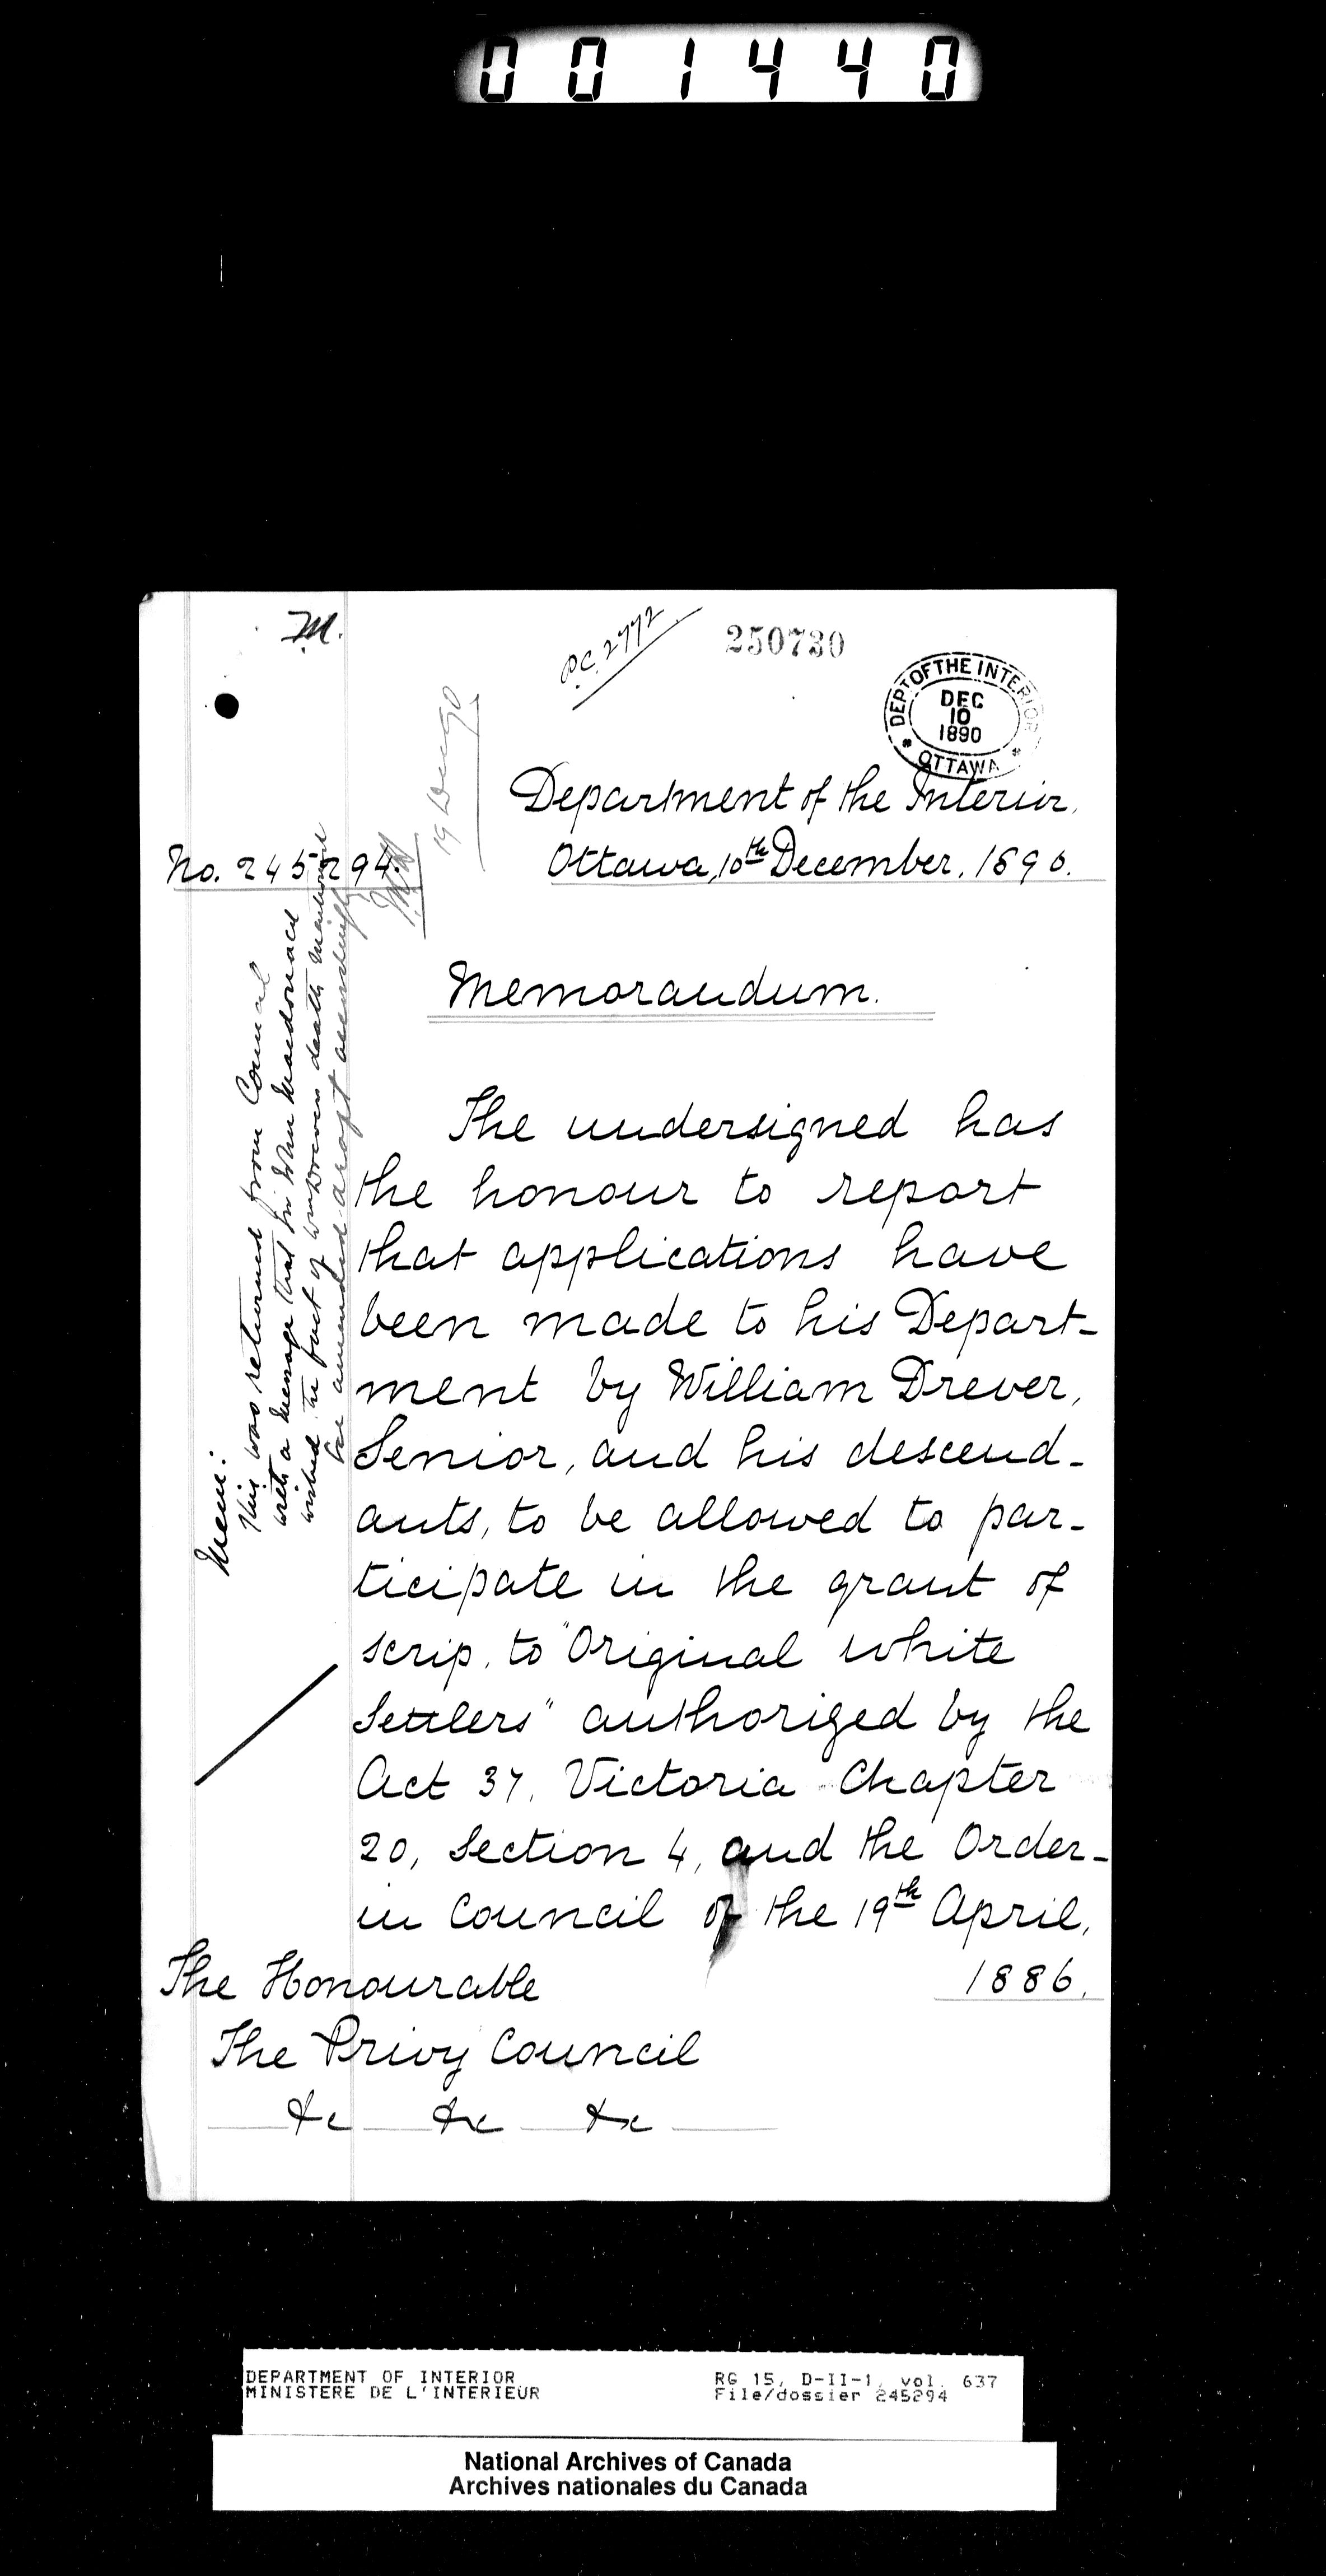 001440
M.
P.C. 2772
250730
DEPT OF THE INTERIOR
DEC
10
1890
* OTTAWA *
19 Dec 90
Department of the Interior,
No. 245294.
Ottawa, 10th December, 1890.
Memorandum.
Mem:
This was returned from Council
with a message that Sir John Macdonald
wished the fact of Wm Drevers death mentioned
be amended draft accordingly
The undersigned has
the honour to report
that applications have
been made to his Depart-
ment by William Drever,
Senior, and his descend-
ants, to be allowed to par-
ticipate in the grant of
scrip, to "Original white
Settlers" authorized by the
Act 37, Victoria Chapter
20, Section 4, and the Order-
in Council of the 19th April,
1886.
The Honourable
The Privy Council
&c &c &c
DEPARTMENT OF INTERIOR
MINISTERE DE L'INTERIEUR
RG 15, D-II-1, vol. 637
File/dossier 245294
National Archives of Canada
Archives nationales du Canada